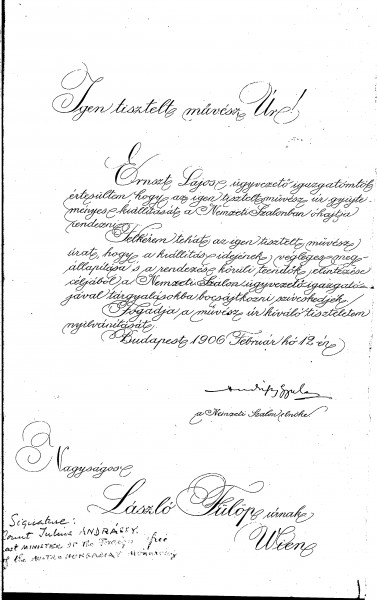 Igen tisztelt művész Úr!
Ernszt Lajos ügyvezető igazgatómtól
értesültem hogy az igen tisztelt művész úr gyűjte-
ményes kiállítását a Nemzeti Szalonban óhajtja
rendezni.
Felkérem tehát az igen tisztelt művész
urat, hogy a kiállítás idejének végleges meg-
állapítása s a rendezés körüli teendők elintézése
céljából a Nemzeti Szalon ügyvezető igazgató-
jával tárgyalásokba bocsátkozni szíveskedjék.
Fogadja a művész úr kiváló tiszteletem
nyilvánítását.
Budapest 1906 Február hó 12-én
Andrássy Gyula
a Nemzeti Szalon elnöke.
Nagyságos
László Fülöp úrnak
Wien
Signature:
Count Julius ANDRÁSSY.
last MINISTER of the Foreign
of the AUSTRO HUNGARIAN Monarchy